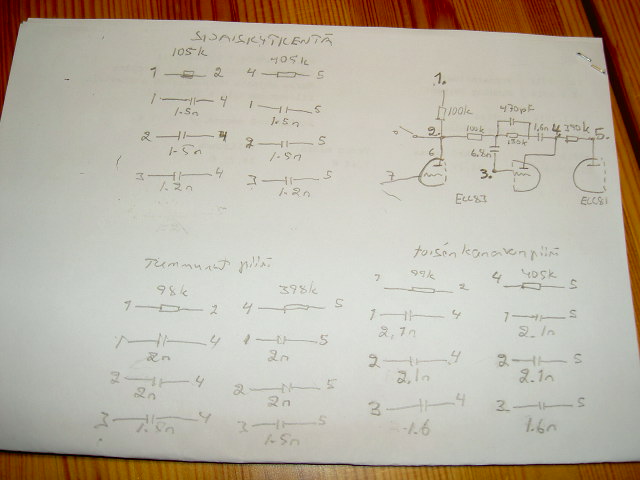 SIJAISKYTKENTÄ
105k
1 2
1 4
1.5n
2 4
1.5n
3 4
1.2n
405k
4 5
1 5
1.5n
2 5
1.5n
3 5
1.2n
1.
100k
2.
100k
470pF
150k
1,6n
4.
390k
5.
6.8n
6
3.
7
ECC83
ECC81
piiri
98k
1 2
1 4
2n
2 4
2n
3 4
1.5n
398k
4 5
1 5
2n
2 5
2n
3 5
1.5n
toisen kanavan piiri
99k
1 2
1 4
2,1n
2 4
2,1n
3 4
1.6
405k
4 5
1 5
2.1n
2 5
2.1n
3 5
1.6n